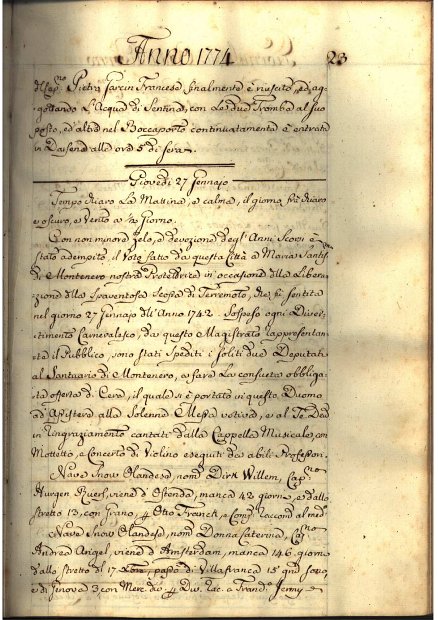 Anno 1774 23
del Cap.no Pietro Garcin Francese finalmente è riuscito, ed ag-
gottando L'Acqua di Sentina, con Le due Trombe al suo
posto, ed' altra nel Boccaporto continuatamente è entrato
in Darsena alle ore 5 di sera.
Giovedì 27 Gennajo
Tempo chiaro La Mattina, e calma, il giorno frà chiaro
e oscuro, e Vento a ½ Giorno.
Con non minore Zelo, e devozione degl'Anni Scorsi è
stato adempito il Voto fatto da questa Città a Maria Santis.
di Montenero nostra Protettrice in occasione della Libera-
zione della Spaventosa Scossa di Terremoto, che si sentita
nel giorno 27 Gennajo dell'Anno 1742. Sospeso ogni Diver-
timento Carnevalesco, da questo Magistrato rappresentan-
te il Pubblico, sono stati Spediti i soliti due Deputati
al Santuario di Montenero, a fare La consueta obbliga-
ta offerta di Cera, il quale si è portato in questo Duomo
ad'Assistere alla Solenne Messa votiva, e al Te Deum
in ringraziamento cantati dalla Cappella Musicale, con
Mottetto, e Concerto di Violino eseguiti da abili Professori.
Nave Snow Olandese, nom. Dirk Willem, Cap.no
viene d'Ostenda, manca 42 giorni, e dallo
stretto 13, con Grano, Otto Franck, e Comp.
Nave Snow Olandese, nom. Donna Caterina, Cap.no
Andrea Angel, viene d'Amsterdam, manca 146 giorni
dallo stretto 17, da Villafranca 15
e di Genova 3 con Merc. Jermy